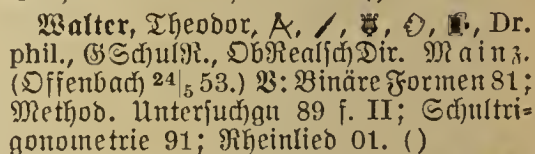 Walter, Theodor, Dr.
phil., GSchulR., ObRealschDir. Mainz.
(Offenbach 24|5 53.) V: Binäre Formen 81;
Method. Untersuchgn 89 f. II; Schultri=
gonometrie 91; Rheinlied 01. ()